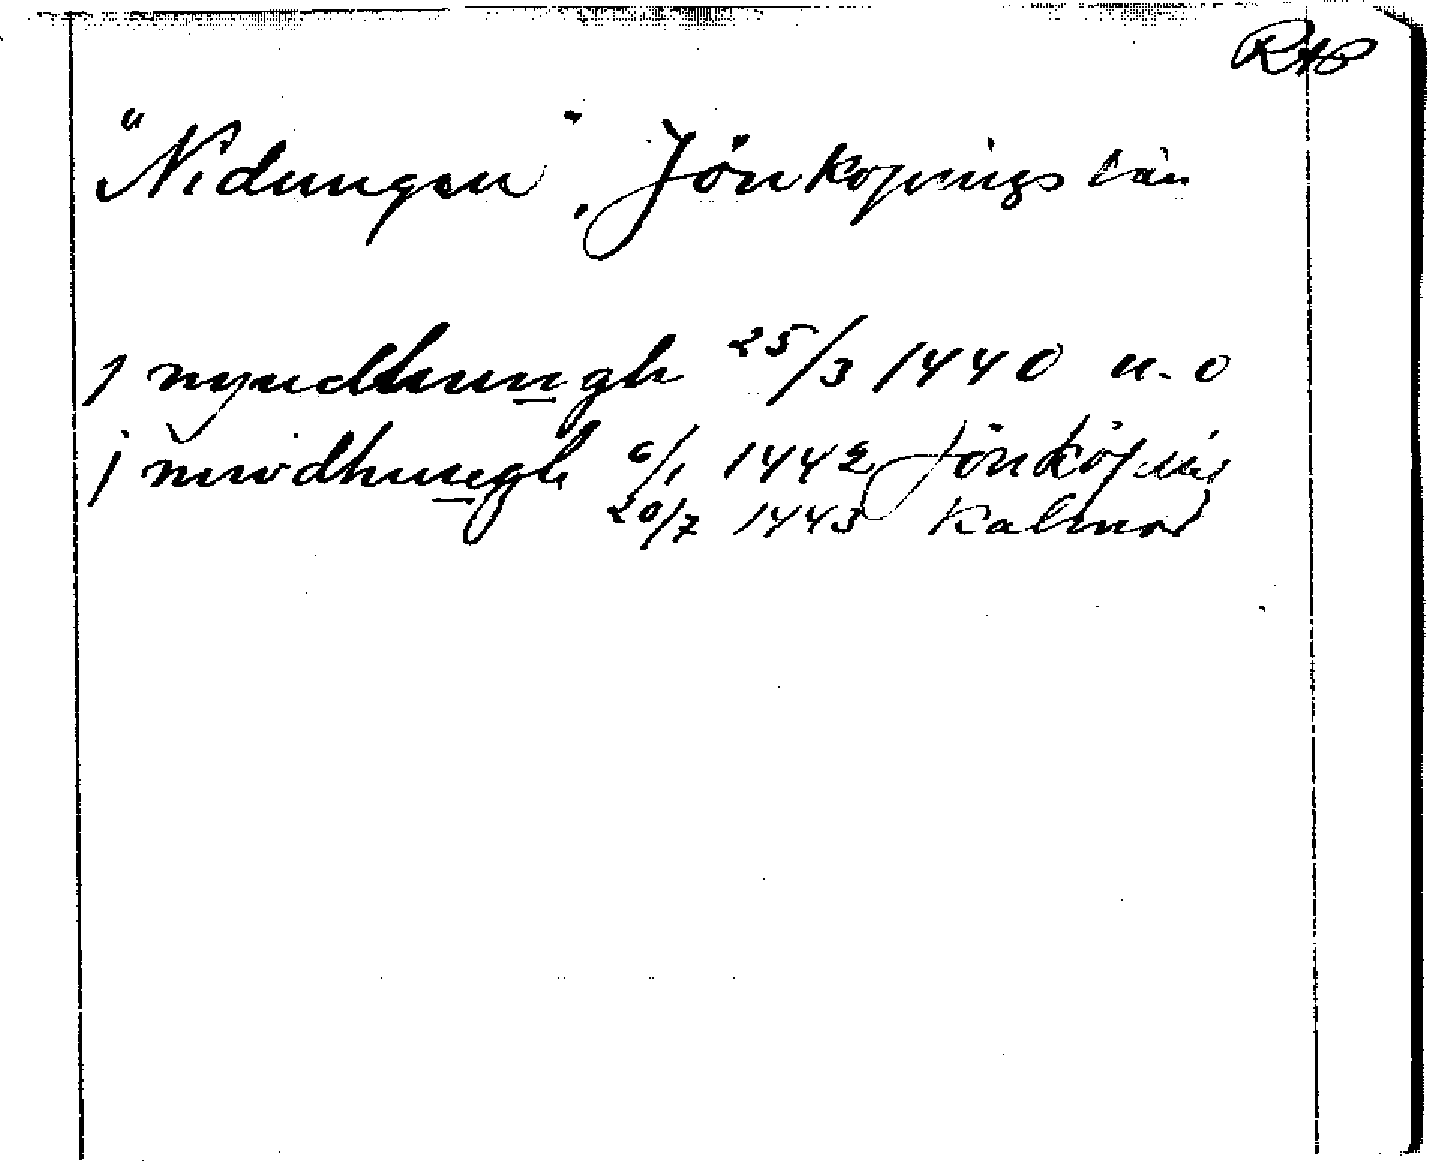 RAP
"Nidungen", Jönköpings län
j nyudhungh 25/3 1440 u. o
j niwdhungh 6/1 1442 Jönköping
20/7 1443 Kalmar